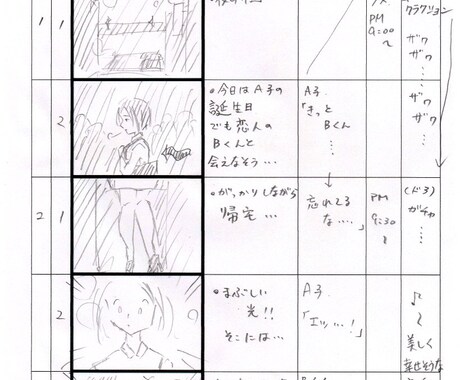 1
1
PM
9:00
〜
クラクション
ザワ
ザワ
……
ザワ
ザワ
…
2
・今日はA子の
誕生日
でも恋人の
Bくんと
会えなそう…
A子
「きっと
Bくん
…
↓
忘れてる
な….」
2
1
・がっかりしながら
帰宅…
PM
9:30
〜
(ドア)
ガチャ
…
2
・まぶしい
光!!
そこには…
A子
「エッ…!」
♪
〜
美しく
幸せそうな